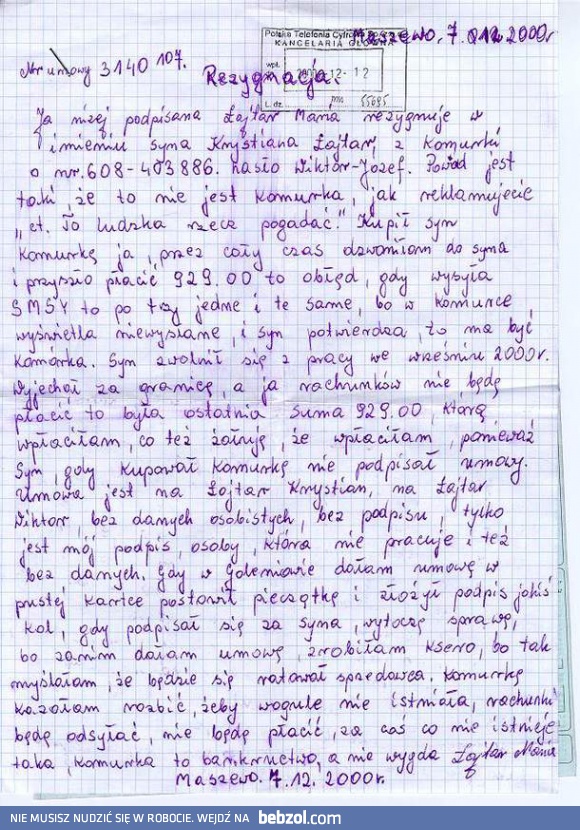 Maszewo. 7.12.2000r
Polska Telefonia Cyfrowa
KANCELARIA GŁÓWNA
wpł. 12-12
L. dz. 55695
Nr umowy 3140 107.
Rezygnacja.
Ja niżej podpisana Łajtar Maria rezygnuję w
imieniu syna Krystiana Łajtar, z komurki
o nr. 608-403886. hasło Wiktor-Józef. Powód jest
taki, że to nie jest komurka, jak reklamujecie
„et. To ludzka rzecz pogadać." Kupił syn
komurkę ja, przez cały czas dzwoniłam do syna
i przyszło płacić 929.00 to obłęd, gdy wysyła
SMSY to po trzy jedne i te same, bo w komurce
wyświetla niewysłane, i syn potwierdza, to ma być
komórka. Syn zwolnił się z pracy we wrześniu 2000r.
wyjechał za granicę, a ja rachunków nie będę
płacić to była ostatnia suma 929.00, którą
wpłaciłam, co też żałuję, że wpłaciłam, ponieważ
syn, gdy kupował komurkę nie podpisał umowy.
Umowa jest na Łajtar Krystian, na Łajtar
Wiktor, bez danych osobistych, bez podpisu, tylko
jest mój podpis, osoby, która nie pracuje i też
bez danych. Gdy w Goleniowie dałam umowę w
pustej kartce postawił pieczątkę i złożył podpis jakiś
kol, gdy podpisał się za syna, wytoczę sprawę,
bo zanim dałam umowę, zrobiłam ksero, bo tak
myślałam, że będzie się ratował sprzedawca. Komurkę
kazałam rozbić, żeby wogule nie istniała, rachunki
będę odsyłać, nie będę płacić, za coś co nie istnieje
taka, komurka to bankructwo, a nie wygda Łajtar Maria
Maszewo. 7.12.2000r.
NIE MUSISZ NUDZIĆ SIĘ W ROBOCIE. WEJDŹ NA bebzol.com